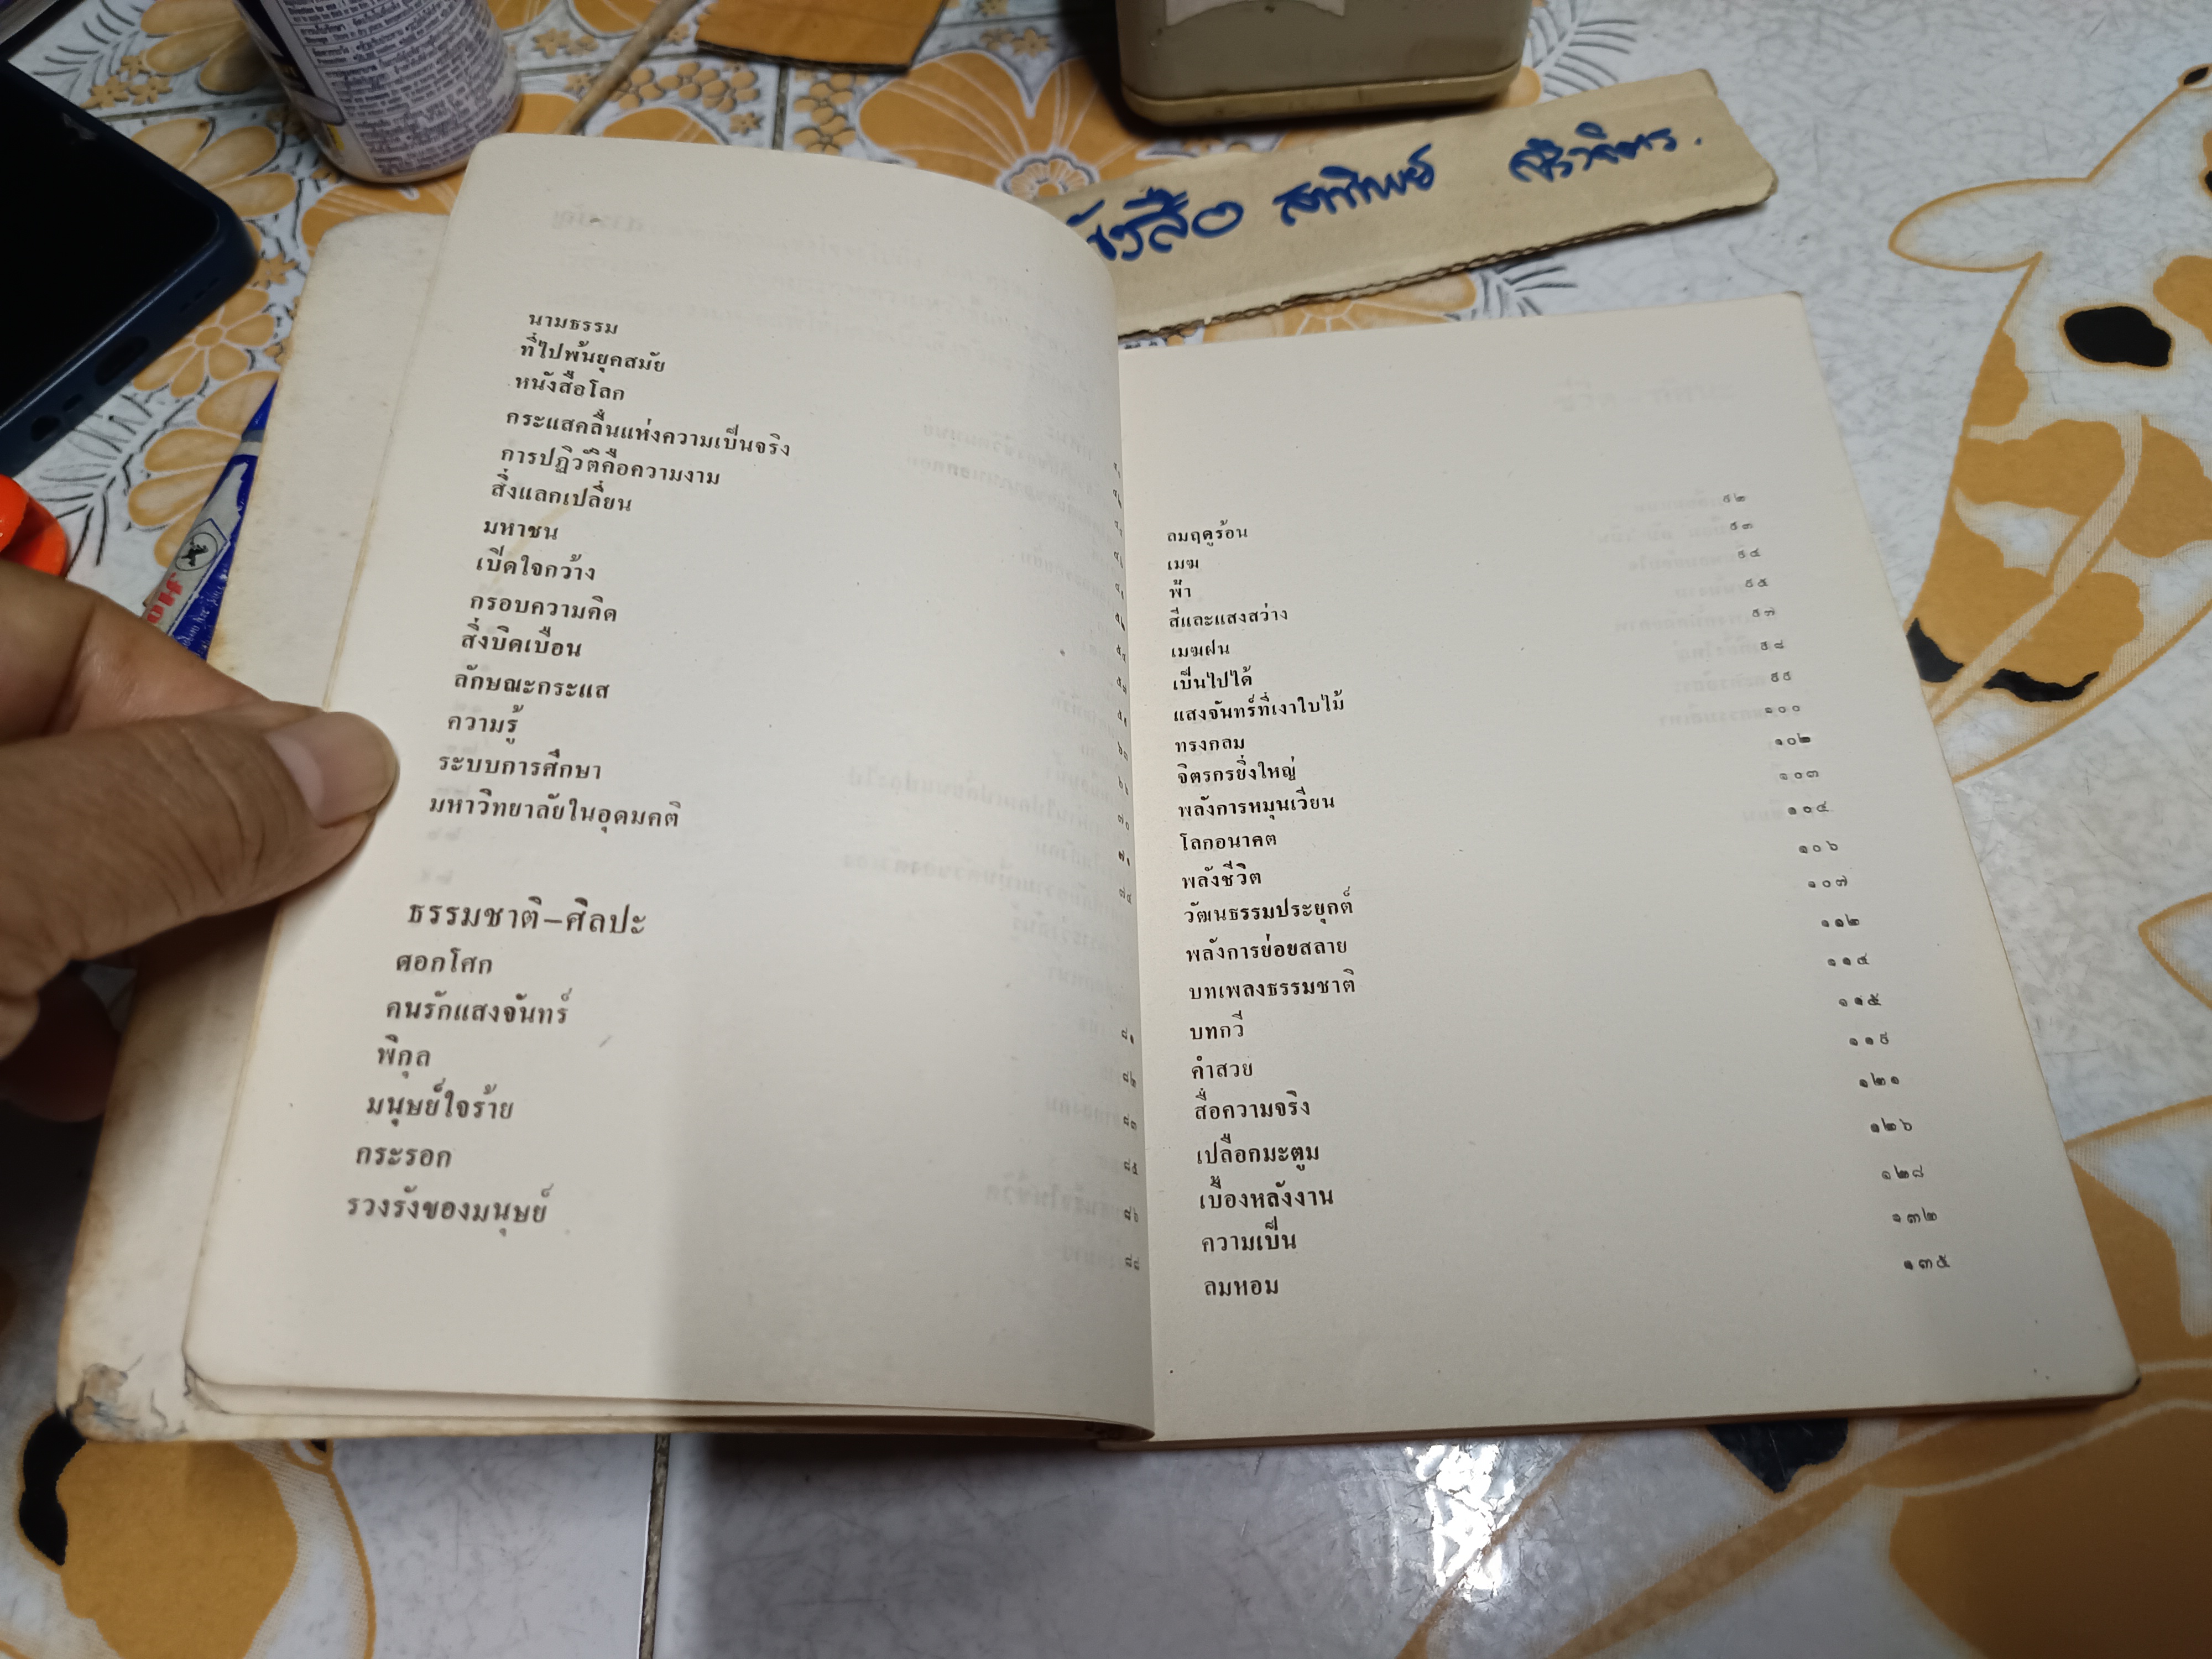 นามธรรม
ที่ไปพ้นยุคสมัย
หนังสือโลก
กระแสคลื่นแห่งความเป็นจริง
การปฏิวัติคือความงาม
สิ่งแลกเปลี่ยน
มหาชน
เปิดใจกว้าง
กรอบความคิด
สิ่งบิดเบือน
ลักษณะกระแส
ความรู้
ระบบการศึกษา ๗๐
มหาวิทยาลัยในอุดมคติ ๗๑
๗๔
ธรรมชาติ–ศิลปะ
ศอกโศก ๘๑
คนรักแสงจันทร์ ๘๒
พิกุล ๘๓
มนุษย์ใจร้าย ๘๕
กระรอก ๘๖
รวงรังของมนุษย์
ลมฤดูร้อน ๙๒
เมฆ ๙๓
ฟ้า ๙๔
สีและแสงสว่าง ๙๕
เมฆฝน ๙๗
เป็นไปได้ ๙๘
แสงจันทร์ที่เงาใบไม้ ๙๙
ทรงกลม ๑๐๐
จิตรกรยิ่งใหญ่ ๑๐๒
พลังการหมุนเวียน ๑๐๓
โลกอนาคต ๑๐๔
พลังชีวิต ๑๐๖
วัฒนธรรมประยุกต์ ๑๐๗
พลังการย่อยสลาย ๑๑๒
บทเพลงธรรมชาติ ๑๑๔
บทกวี ๑๑๕
คำสวย ๑๑๙
สื่อความจริง ๑๒๑
เปลือกมะตูม ๑๒๖
เบื้องหลังงาน ๑๒๘
ความเป็น ๑๓๒
ลมหอม ๑๓๕